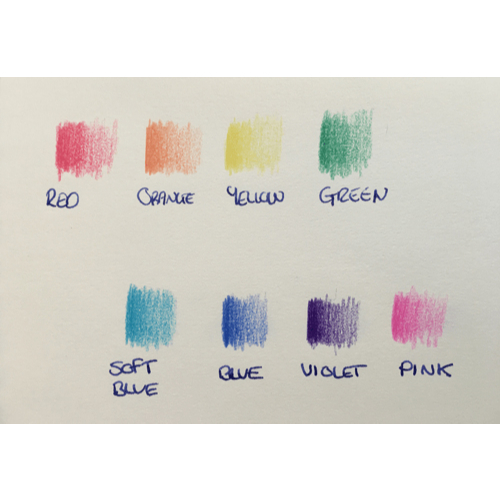 RED ORANGE YELLOW GREEN
SOFT BLUE VIOLET PINK
BLUE